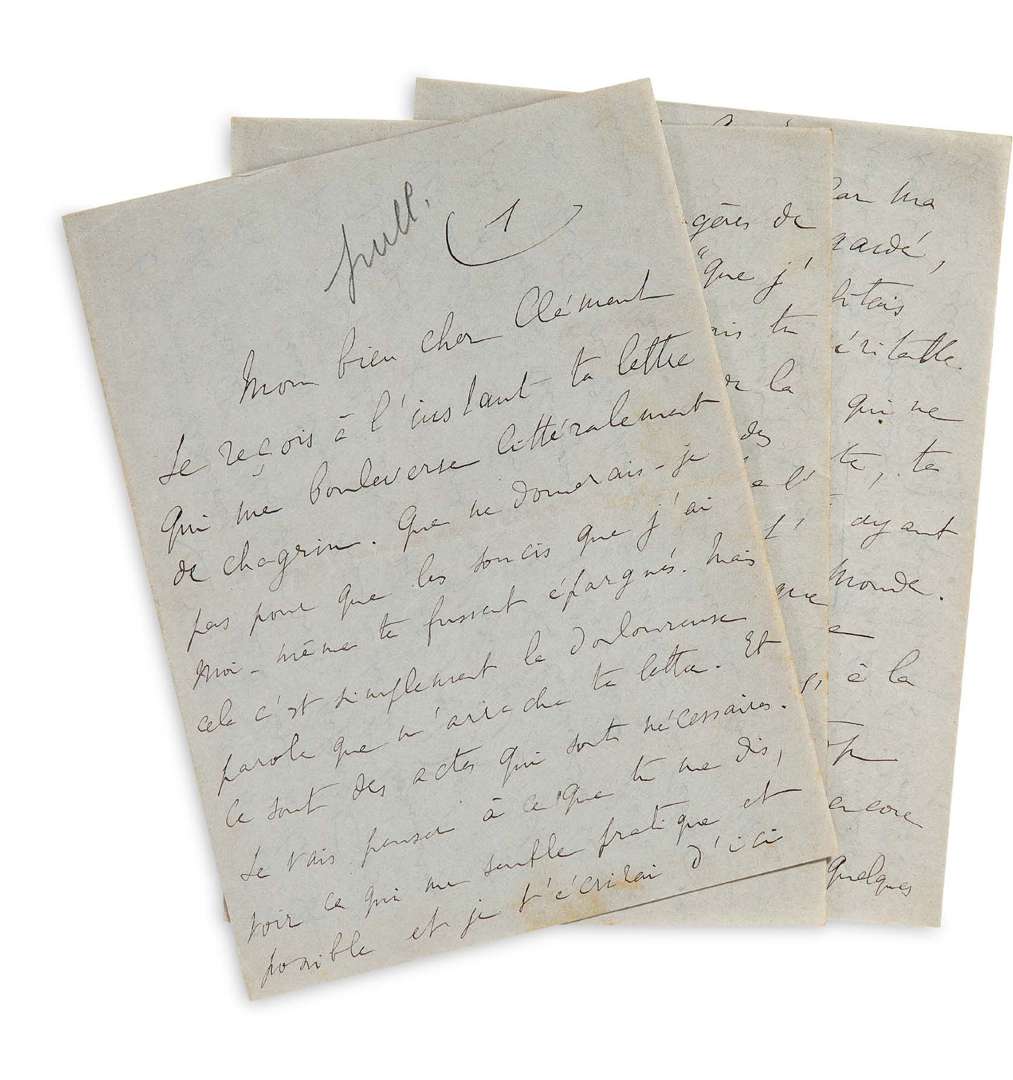 1
Mon bien cher Clément
Je reçois à l'instant ta lettre
qui me bouleverse littéralement
de chagrin. Que ne donnerais-je
pas pour que les soucis que j'ai
moi-même te fussent épargnés. Mais
cela c'est simplement la douloureuse
parole que m'arrache ta lettre. Et
ce sont des actes qui sont nécessaires.
Je vais penser à ce que tu me dis,
voir ce qui me semble pratique et
possible et je t'écrirai d'ici
gères de
"que j'
ais tu
la
des
que
par ma
gardé,
éritable.
qui ne
te, ta
ayant
monde.
à la
encore
quelques